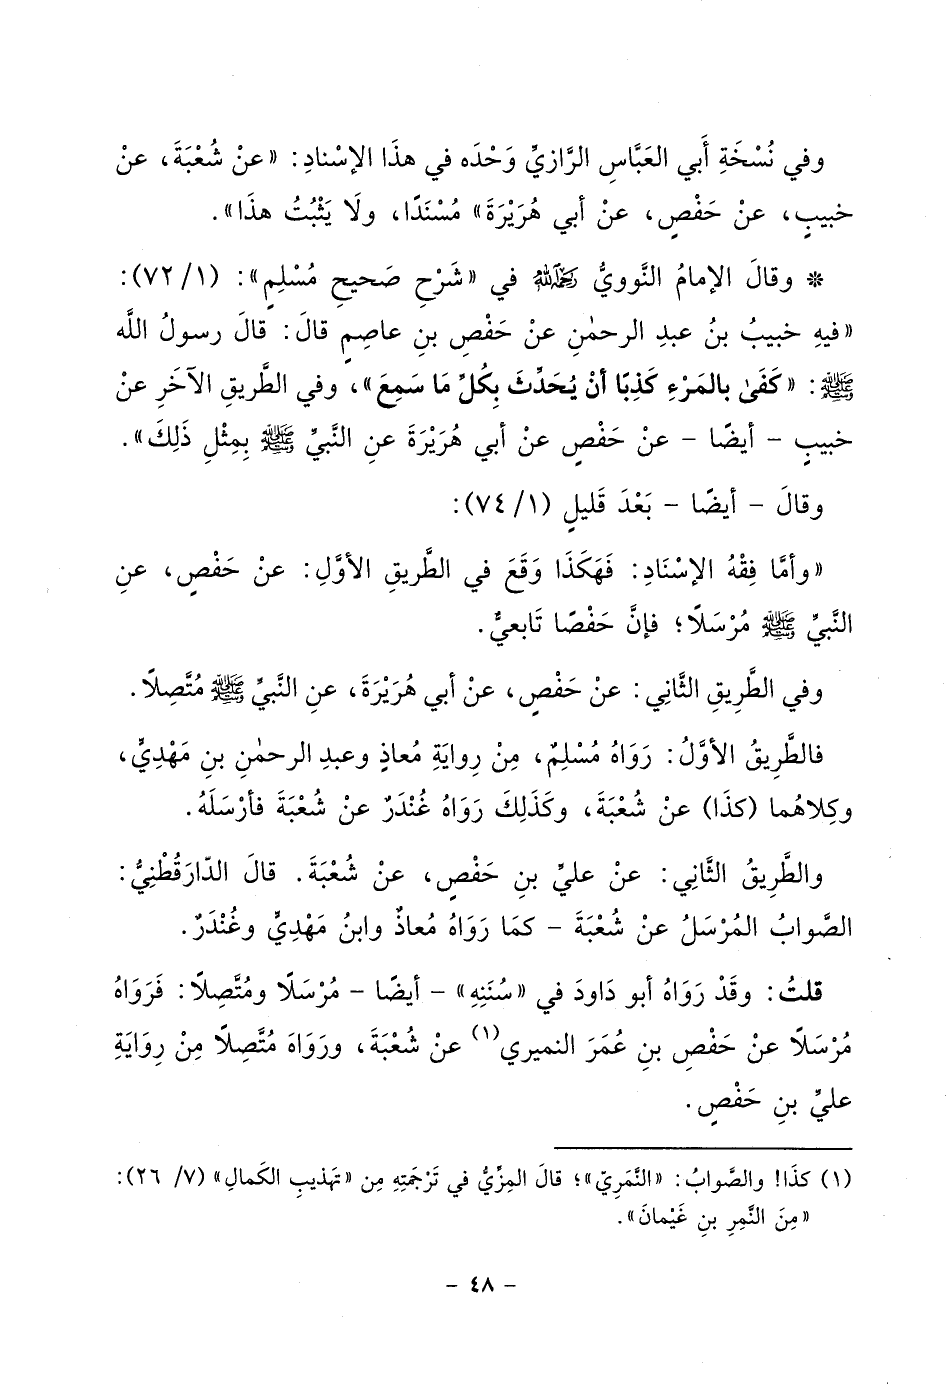 وفي نُسْخَةِ أَبي العَبَّاسِ الرَّازيِّ وَحْدَه في هذَا الإسْنادِ: «عنْ شُعْبَةَ، عنْ
خبيبٍ، عنْ حَفْصٍ، عنْ أبي هُرَيْرَةَ» مُسْنَدًا، ولَا يَثْبُتُ هذَا».
* وقالَ الإمامُ النَّوويُّ رَحِمَهُ اللهُ في «شَرْحِ صَحيحِ مُسْلِمٍ»: (١/ ٧٢):
«فيهِ خبيبُ بنُ عبدِ الرحمٰنِ عنْ حَفْصِ بنِ عاصِمٍ قالَ: قالَ رسولُ اللَّه
ﷺ: «كَفَىٰ بالمَرْءِ كَذِبًا أنْ يُحَدِّثَ بِكُلِّ مَا سَمِعَ»، وفي الطَّريقِ الآخَرِ عنْ
خبيبٍ - أيضًا - عنْ حَفْصٍ عنْ أبي هُرَيْرَةَ عنِ النَّبيِّ ﷺ بِمِثْلِ ذَلِكَ».
وقالَ - أيضًا - بَعْدَ قَليلٍ (١/ ٧٤):
«وأمَّا فِقْهُ الإسْنَادِ: فَهَكَذَا وَقَعَ في الطَّريقِ الأوَّلِ: عنْ حَفْصٍ، عنِ
النَّبيِّ ﷺ مُرْسَلًا؛ فإنَّ حَفْصًا تَابعيٌّ.
وفي الطَّرِيقِ الثَّانِي: عنْ حَفْصٍ، عنْ أبي هُرَيْرَةَ، عنِ النَّبيِّ ﷺ مُتَّصِلًا.
فالطَّرِيقُ الأوَّلُ: رَوَاهُ مُسْلِمٌ، مِنْ رِوايَةِ مُعاذٍ وعبدِ الرحمٰنِ بنِ مَهْدِيٍّ،
وكِلاهُما (كذَا) عنْ شُعْبَةَ، وكَذَلِكَ رَوَاهُ غُنْدَرٌ عنْ شُعْبَةَ فأرْسَلَهُ.
والطَّرِيقُ الثَّانِي: عنْ عليِّ بنِ حَفْصٍ، عنْ شُعْبَةَ. قالَ الدّارَقُطْنِيُّ:
الصَّوابُ المُرْسَلُ عنْ شُعْبَةَ - كمَا رَوَاهُ مُعاذٌ وابنُ مَهْدِيٍّ وغُنْدَرٌ.
قلتُ: وقَدْ رَوَاهُ أبو دَاودَ في «سُنَنِهِ» - أيضًا - مُرْسَلًا ومُتَّصِلًا: فَرَوَاهُ
مُرْسَلًا عنْ حَفْصِ بنِ عُمَرَ النميري(١) عنْ شُعْبَةَ، ورَوَاهَ مُتَّصِلًا مِنْ رِوَايَةِ
عليِّ بنِ حَفْصٍ.
(١) كذَا! والصَّوابُ: «النَّمَرِيّ»؛ قالَ المِزِّيُّ في تَرْجَمَتِهِ مِن «تَهذيبِ الكَمالِ» (٧/ ٢٦):
«مِنَ النَّمِرِ بنِ غَيْمانَ».
- ٤٨ -